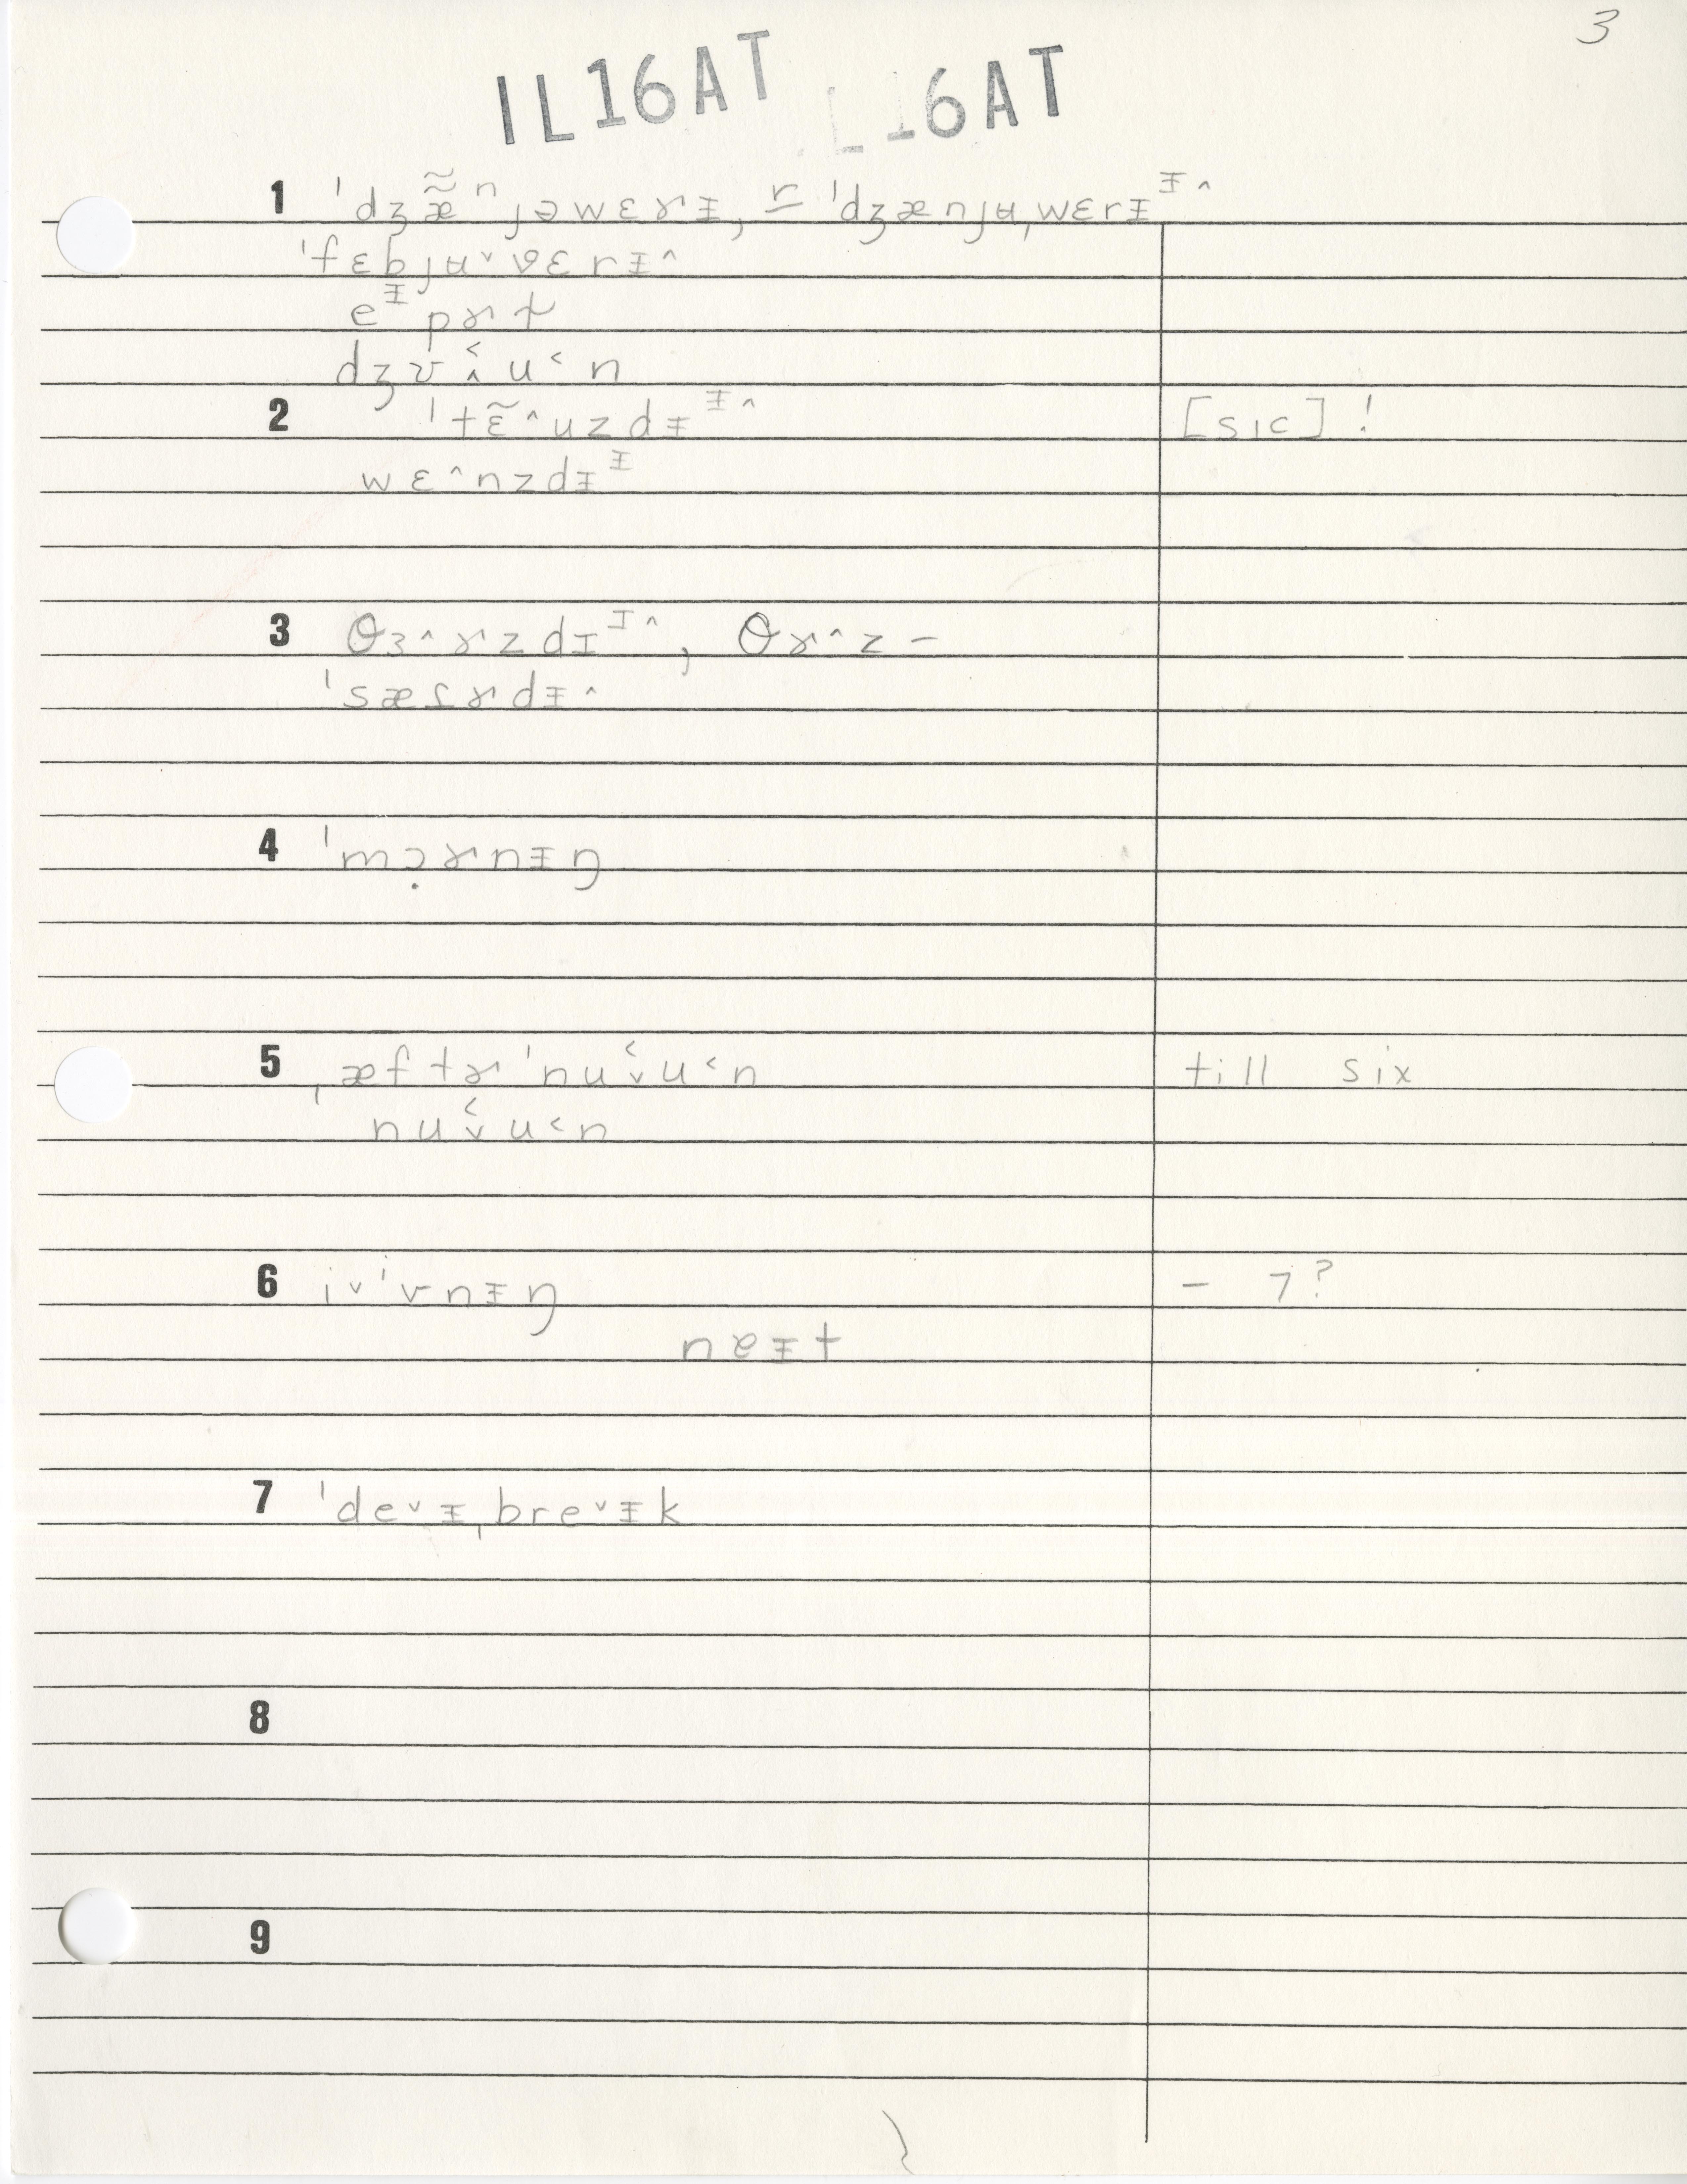 3
IL16AT L16AT
1 ˈdʒæ̃̃ⁿjəwɛɚᵻ, r ˈdʒænjʉˌwɛrᵻᵻ^
ˈfɛbjʉ˅vɛrᵻ^
eᵻpɚɫ
dʒʊ^˂u˂n
2 ˈtɛ̃^uzdᵻᵻ^ [sic]!
wɛ^nzdᵻᵻ
3 θɜ^ɚzdɪɪ^, θɚ^z –
ˈsæɾɚdᵻ^
4 ˈmɔ̣ɚnᵻŋ
5 ˌæftɚˈnu˅˂u˂n till six
nu˅˂u˂n
6 i˅ˈvnᵻŋ – 7?
nɐᵻt
7 ˈde˅ᵻˌbre˅ᵻk
8
9